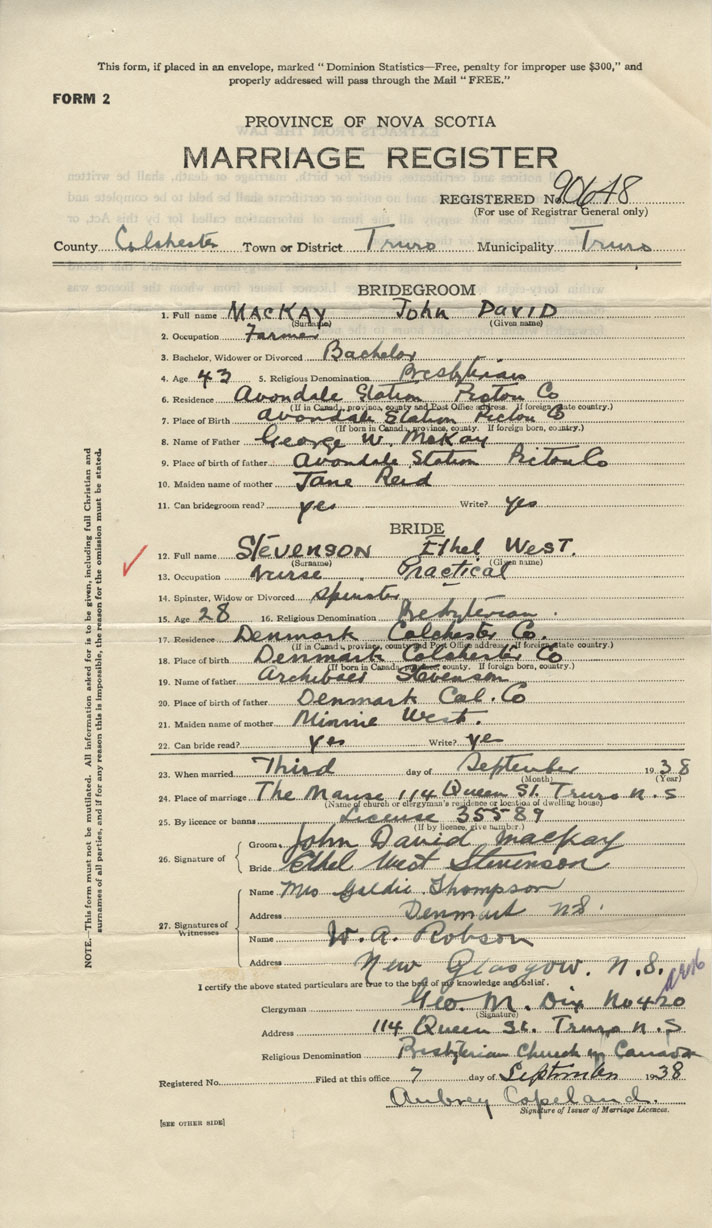 This form, if placed in an envelope, marked "Dominion Statistics—Free, penalty for improper use $300," and
properly addressed will pass through the Mail "FREE."
FORM 2
PROVINCE OF NOVA SCOTIA
MARRIAGE REGISTER
REGISTERED No. 90648
(For use of Registrar General only)
County Colchester Town or District Truro Municipality Truro
BRIDEGROOM
1. Full name MacKAY John DAVID
(Surname) (Given name)
2. Occupation Farmer
3. Bachelor, Widower or Divorced Bachelor
4. Age 43 5. Religious Denomination Presbyterian
6. Residence Avondale Station Pictou Co
(If in Canada, province, county and Post Office address. If foreign, state country.)
7. Place of Birth Avondale Station Pictou Co
(If born in Canada, province, county. If foreign born, country.)
8. Name of Father George W. McKay
9. Place of birth of father Avondale Station Pictou Co
10. Maiden name of mother Jane Reid
11. Can bridegroom read? yes Write? yes
BRIDE
12. Full name STEVENSON Ethel West.
(Surname) (Given name)
13. Occupation Nurse Practical
14. Spinster, Widow or Divorced Spinster
15. Age 28 16. Religious Denomination Presbyterian.
17. Residence Denmark Colchester Co.
(If in Canada, province, county and Post Office address. If foreign state country.)
18. Place of birth Denmark Colchester Co
(If born in Canada, province, county. If foreign born, country.)
19. Name of father Stevenson
20. Place of birth of father Denmark Col. Co
21. Maiden name of mother Minnie West.
22. Can bride read? yes Write? ye
23. When married Third day of September 1938
(Month) (Year)
24. Place of marriage The Manse 114 Queen St. Truro N.S
(Name of church or clergyman's residence or location of dwelling house)
25. By licence or banns License 35589
(If by licence, give number.)
26. Signature of
Groom John David MacKay
Bride Ethel West Stevenson
27. Signatures of Witnesses
Name Mrs Goldie Thompson
Address Denmark N.S.
Name W. A. Robson
Address New Glasgow. N.S.
I certify the above stated particulars are true to the best of my knowledge and belief.
Clergyman Geo. M. Dix No420
(Signature)
Address 114 Queen St. Truro N.S
Religious Denomination Presbyterian Church in Canada
Registered No. Filed at this office 7 day of September 1938
Aubrey Copeland.
Signature of Issuer of Marriage Licences.
[SEE OTHER SIDE]
NOTE.—This form must not be mutilated. All information asked for is to be given, including full Christian and
surnames of all parties, and if for any reason this is impossible, the reason for the omission must be stated.